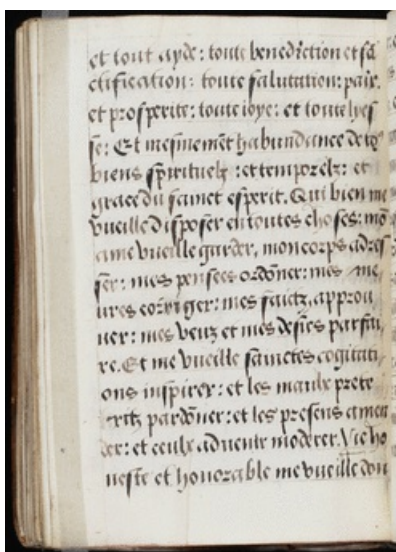 et tout ayde: toute benediction et sā
ctification: toute salutation: paix
et prosperite: toute ioye: et toute lyes
se: Et mesmemēt habundance de to9
biens spirituelz: et temporelz: et
grace du sainct esperit. Qui bien me
vueille disposer en toutes choses: mō
ame vueille garder, mon corps adres
ser: mes pensees ordōner: mes me
ures corriger: mes faictz, approu
uer: mes veuz et mes desirs parfai
re. Et me vueille sainctes cogitati
ons inspirer: et les maulx prete
ritz pardōner: et les presens amen
der: et ceulx aduenir moderer. Vie ho
neste et honorable me vueille don